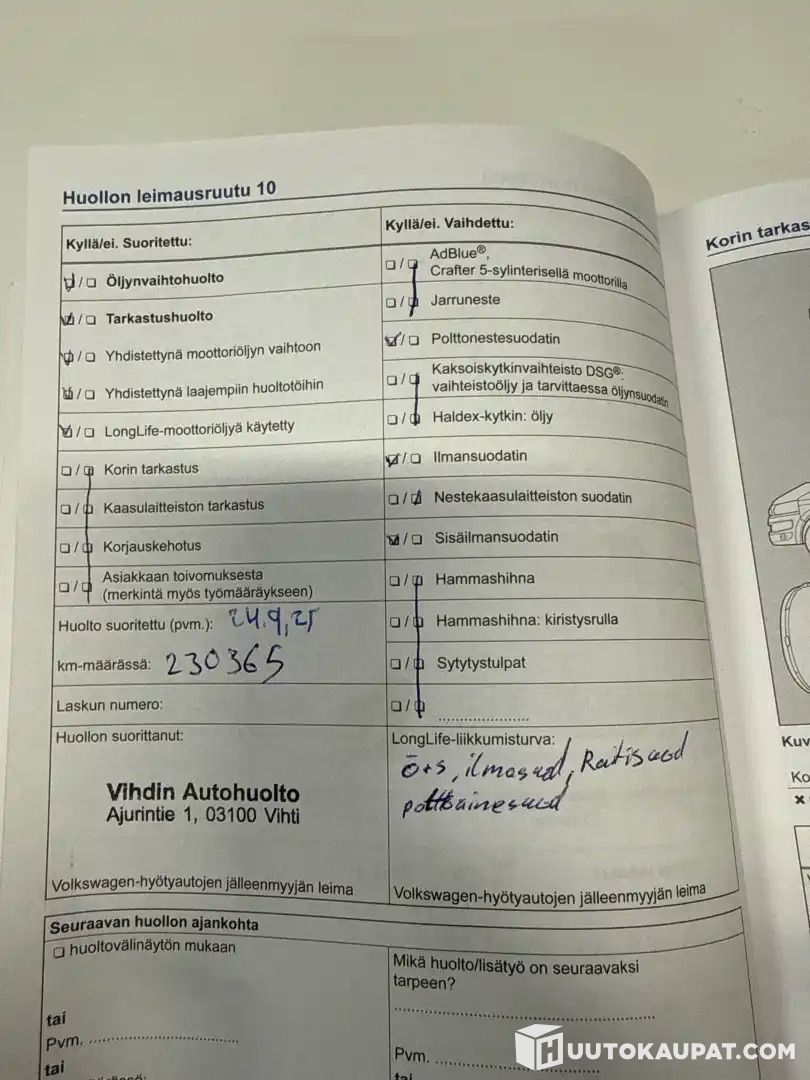 Huollon leimausruutu 10
Kyllä/ei. Suoritettu:
Öljynvaihtohuolto
Tarkastushuolto
Yhdistettynä moottoriöljyn vaihtoon
Yhdistettynä laajempiin huoltotöihin
LongLife-moottoriöljyä käytetty
Korin tarkastus
Kaasulaitteiston tarkastus
Korjauskehotus
Asiakkaan toivomuksesta
(merkintä myös työmääräykseen)
Huolto suoritettu (pvm.): 24.9,25
km-määrässä: 230365
Laskun numero:
Huollon suorittanut:
Vihdin Autohuolto
Ajurintie 1, 03100 Vihti
Volkswagen-hyötyautojen jälleenmyyjän leima
Kyllä/ei. Vaihdettu:
AdBlue®,
Crafter 5-sylinterisellä moottorilla
Jarruneste
Polttonestesuodatin
Kaksoiskytkinvaihteisto DSG®:
vaihteistoöljy ja tarvittaessa öljynsuodatin
Haldex-kytkin: öljy
Ilmansuodatin
Nestekaasulaitteiston suodatin
Sisäilmansuodatin
Hammashihna
Hammashihna: kiristysrulla
Sytytystulpat
LongLife-liikkumisturva:
ö+s, ilmasuod, Raitisuod
polttoainesuod
Volkswagen-hyötyautojen jälleenmyyjän leima
Seuraavan huollon ajankohta
huoltovälinäytön mukaan
tai
Pvm.
tai
Mikä huolto/lisätyö on seuraavaksi
tarpeen?
Pvm.
tai
Korin tarkas
Kuv
Ko
HUUTOKAUPAT.COM